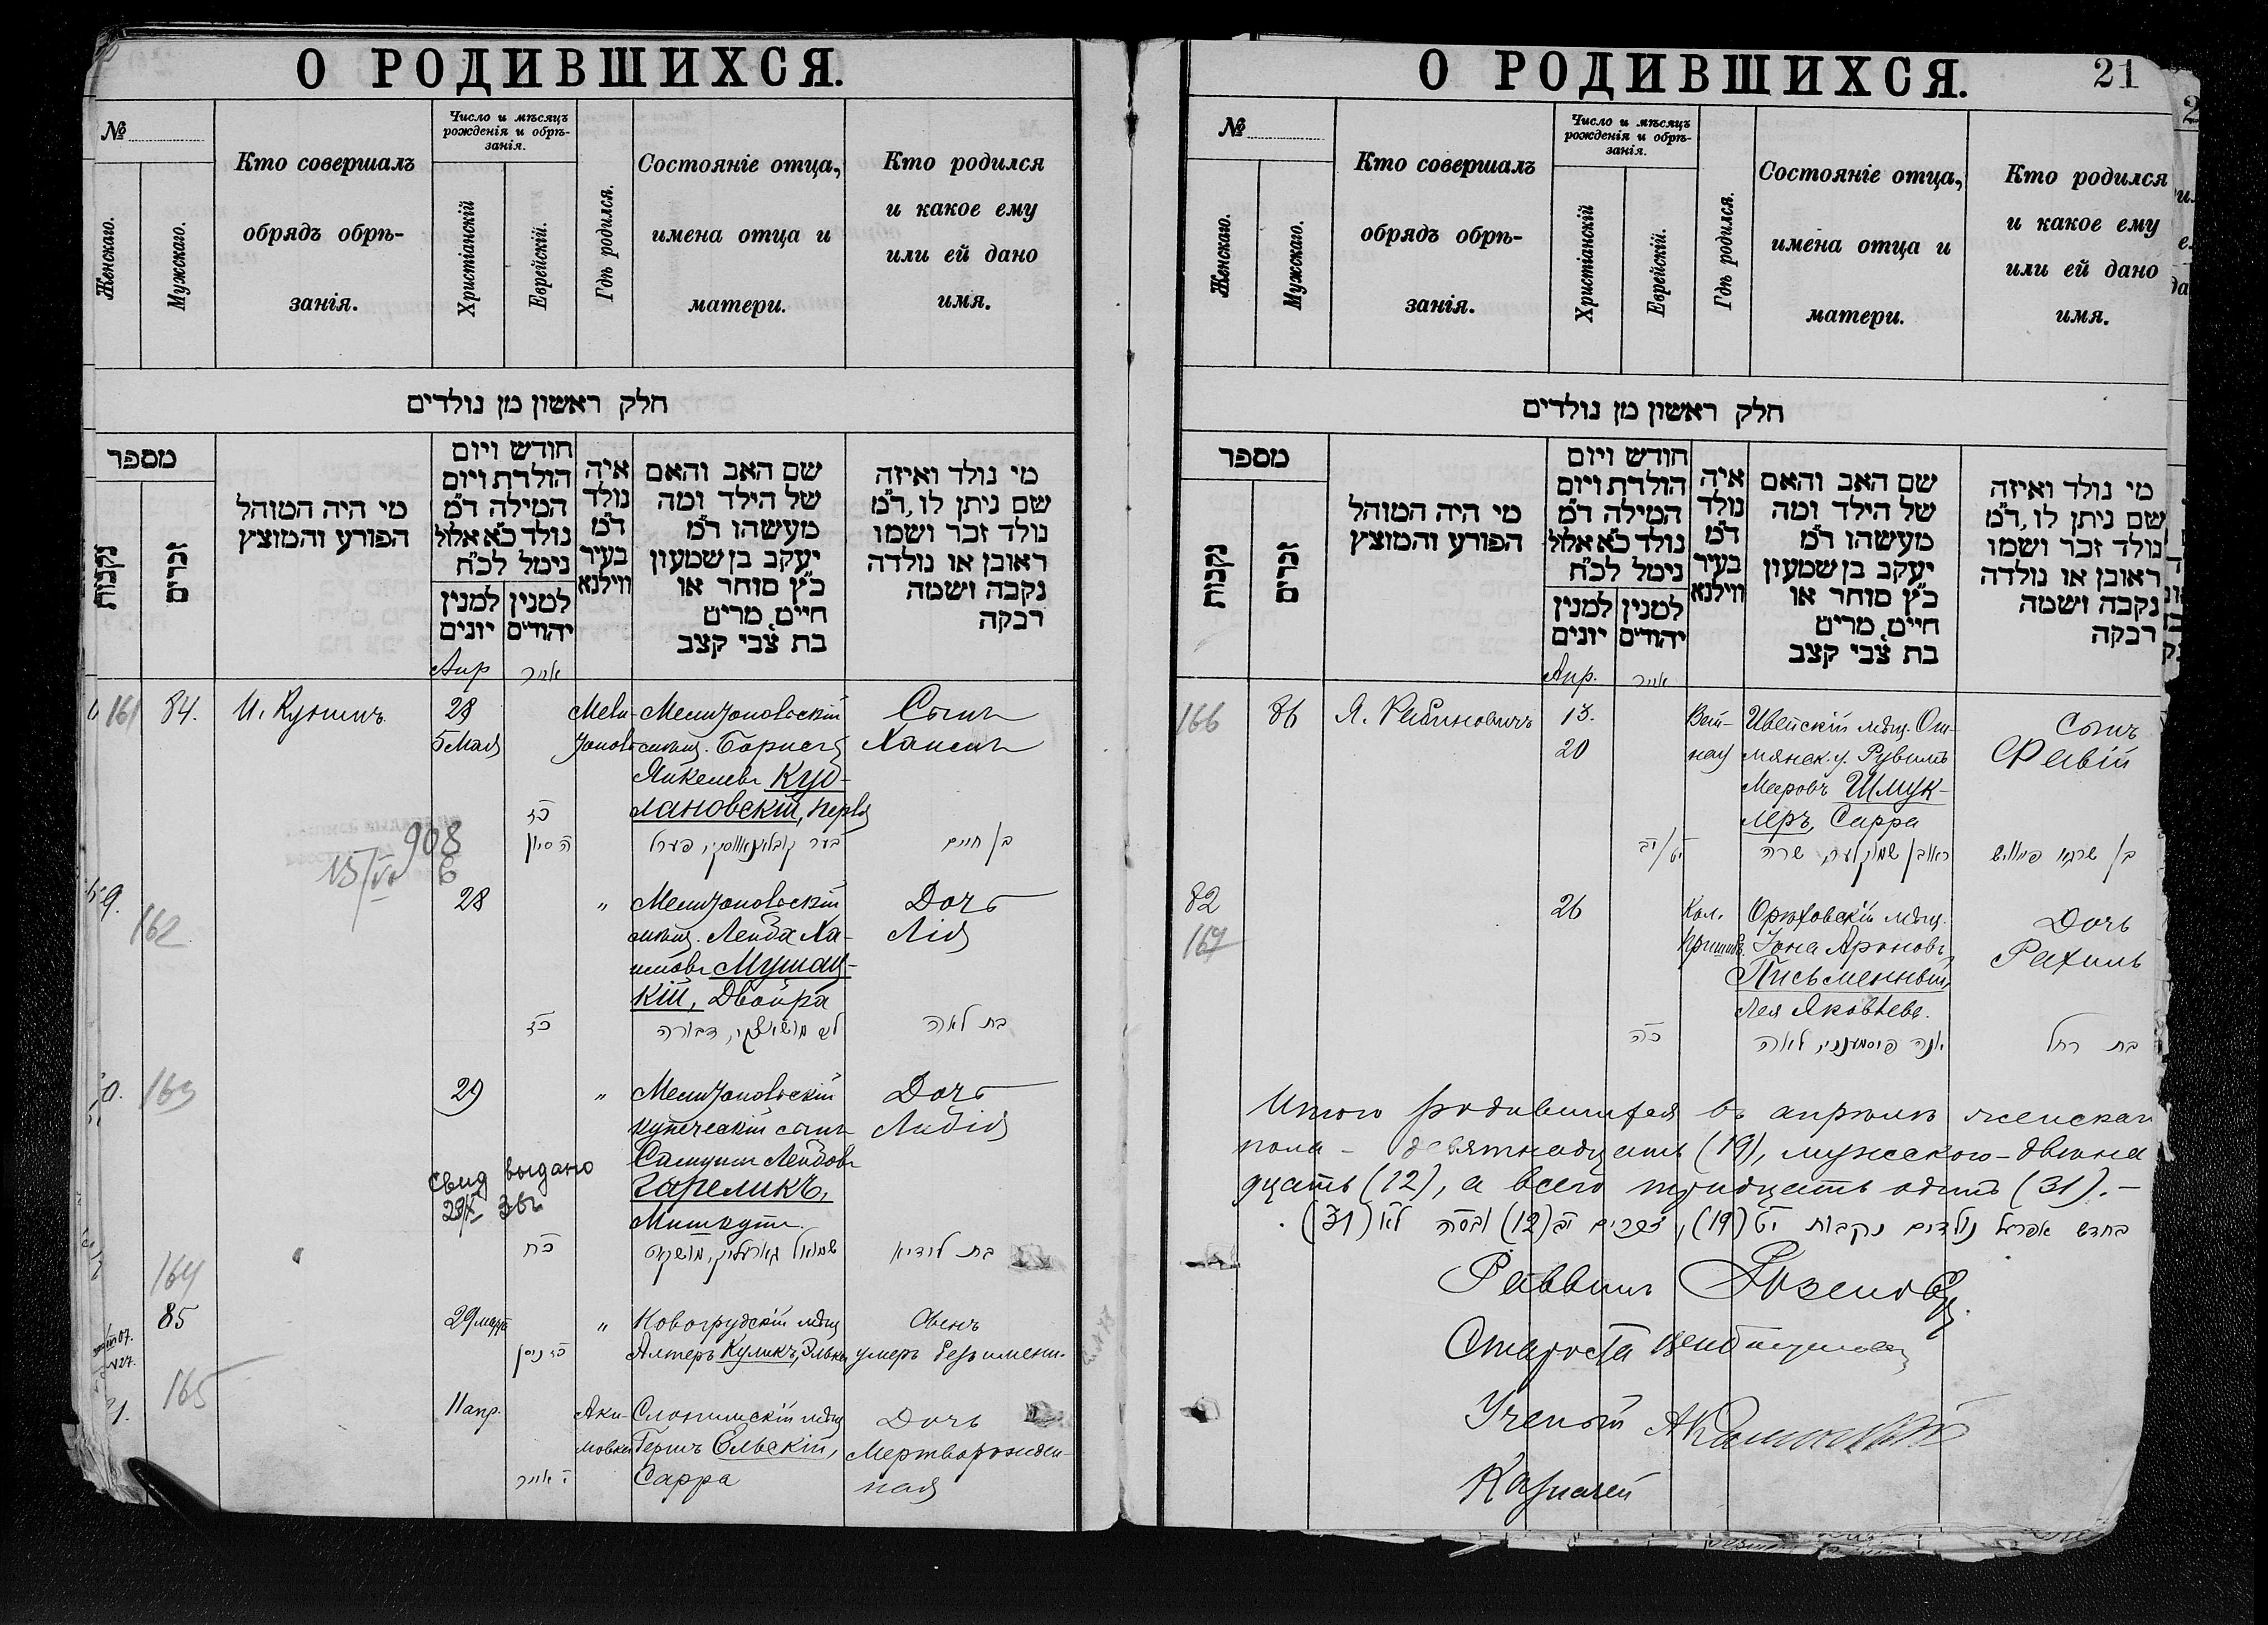 О РОДИВШИХСЯ.
№
Женскаго.
Мужскаго.
Кто совершалъ
обрядъ обрѣ-
занія.
Число и мѣсяцъ
рожденія и обрѣ-
занія.
Христіанскій
Еврейскій.
Гдѣ родился.
Состояніе отца,
имена отца и
матери.
Кто родился
и какое ему
или ей дано
имя.
חלק ראשון מן נולדים
מספר
נקבות
זכרים
מי היה המוהל
הפורע והמוצץ
חודש ויום
הולדת ויום
המילה ד"מ
נולד כ"א אלול
נימל לכ"ח
למנין יונים
למנין יהודים
איה
נולד
ד"מ
בעיר
ווילנא
שם האב והאם
של הילד ומה
מעשהו ד"מ
יעקב בן שמעון
כ"ץ סוחר או
חיים, מרים
בת צבי קצב
מי נולד ואיזה
שם ניתן לו, ד"מ
נולד זכר ושמו
ראובן או נולדה
נקבה ושמה
רבקה
Апр
אייר
161
84.
28
5 Мая
Мели-
Мелитопольскій
Сынъ
Хаимъ
Кур-
лановскій, Перля
כז
ה סיון
בן חיים
908
15/VI
9.
162
28
"
Мелитопольскій
мѣщ. Лейба Ха-
имовъ Мушац-
кій, Двойра
Дочь
Лія
כז
בת לאה
0.
163
29
"
Мелитопольскій
купеческій сынъ
Самуилъ Лейбовъ
Гареликъ,
Дочь
Лидія
Свид выдано
כח
בת לידיא
164
85
29 марта
"
Новогрудскій мѣщ
Алтеръ Куликъ, Элька
Овенъ
умеръ безъ имени.
כז ניסן
165
11 апр.
Аки-
мовка
Слонимскій мѣщ
Гершъ Ельскій,
Сарра
Дочь
Мертворожден-
ная
י אייר
О РОДИВШИХСЯ.
21
№
Женскаго.
Мужскаго.
Кто совершалъ
обрядъ обрѣ-
занія.
Число и мѣсяцъ
рожденія и обрѣ-
занія.
Христіанскій
Еврейскій.
Гдѣ родился.
Состояніе отца,
имена отца и
матери.
Кто родился
и какое ему
или ей дано
имя.
חלק ראשון מן נולדים
מספר
נקבות
זכרים
מי היה המוהל
הפורע והמוצץ
חודש ויום
הולדת ויום
המילה ד"מ
נולד כ"א אלול
נימל לכ"ח
למנין יונים
למנין יהודים
איה
נולד
ד"מ
בעיר
ווילנא
שם האב והאם
של הילד ומה
מעשהו ד"מ
יעקב בן שמעון
כ"ץ סוחר או
חיים, מרים
בת צבי קצב
מי נולד ואיזה
שם ניתן לו, ד"מ
נולד זכר ושמו
ראובן או נולדה
נקבה ושמה
רבקה
Апр.
אייר
166
86
Я. Рабиновичъ
13.
20
Вей-
нау
Ивейскій мѣщ. Ош-
мянск. у. Рувимъ
Мееровъ Шмук-
леръ, Сарра
Сынъ
Файвій
ראובן שמוקלער, שרה
בן שרגא פייוויש
82
167
26
Орѣховскій мѣщ.
Іона Ароновъ
Письменный,
Лея Яковлева.
Дочь
Рахиль
כה
יונה פיסמענני, לאה
בת רחל
Итого родившихся въ апрѣлѣ женскаго
пола - девятнадцать (19), мужского - двѣна
дцать (12), а всего тридцать одинъ (31). -
בחדש אפריל נולדים נקבות יט (19), זכרים יב (12) ובסה לא (31).
Раввинъ
Староста
Ученый
Казначей